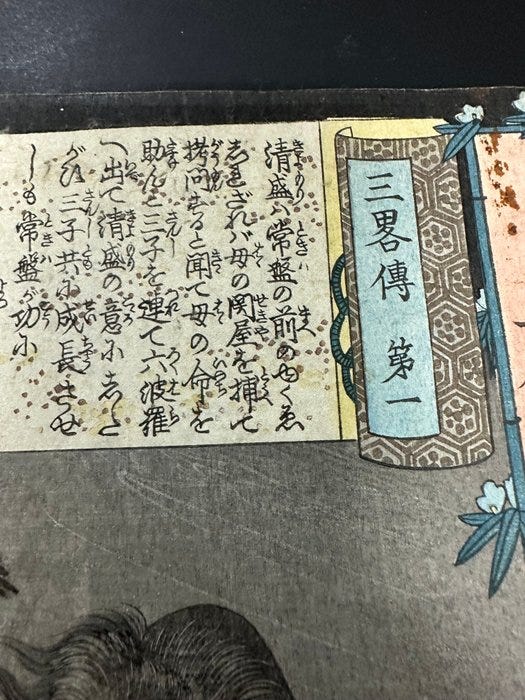 三畧傳 第一
清盛ハ常盤の前のゆくゑ
しれざれバ母の関屋を捕て
拷問すると聞て母の命を
助んと三子を連て六波羅
へ出て清盛の意にした
がひ三子共に成長させ
しも常盤が功に